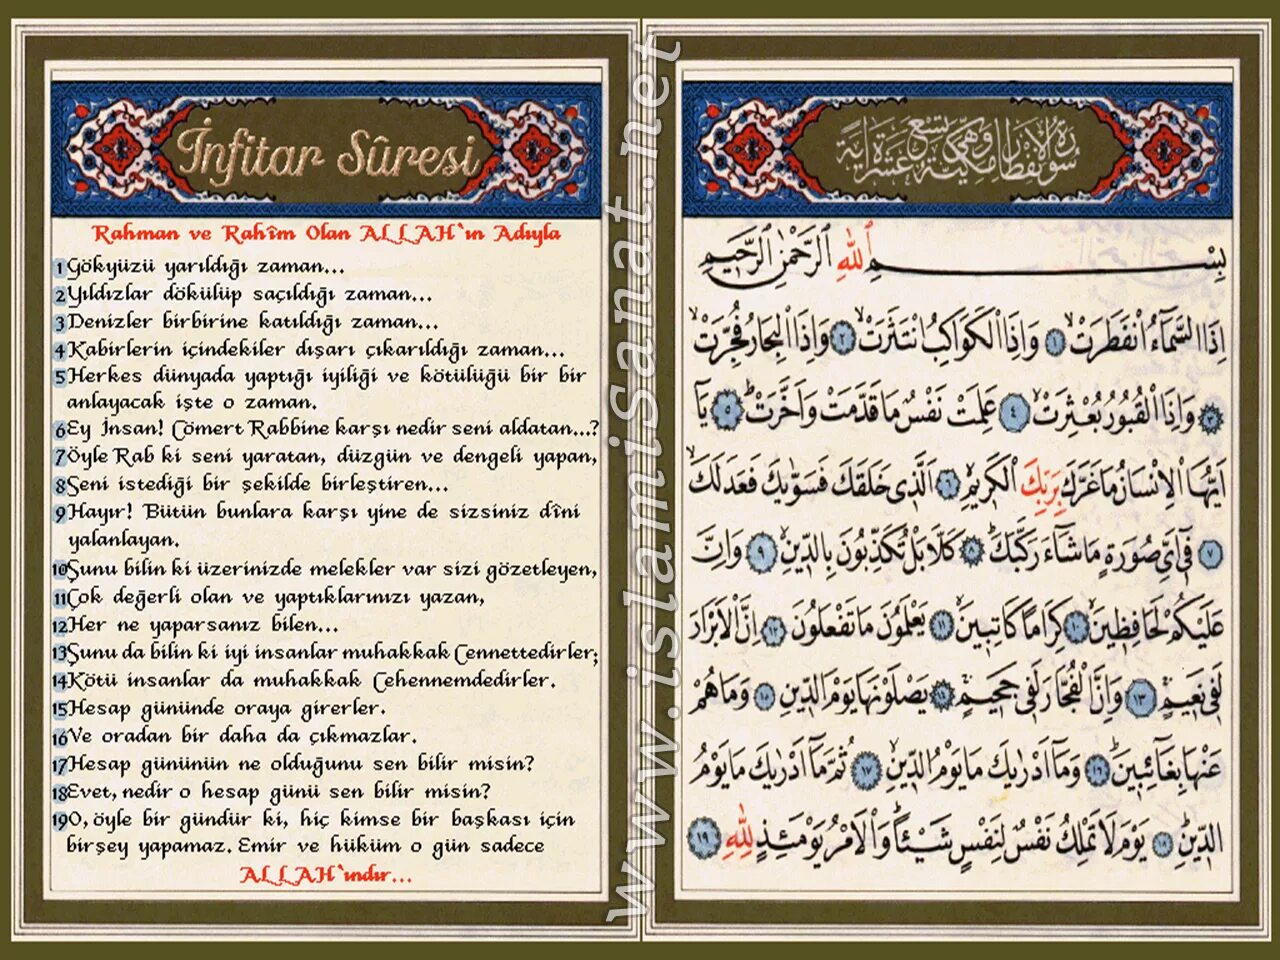 İnfitar Sûresi
Rahman ve Rahîm Olan ALLAH`ın Adıyla
1 Gökyüzü yarıldığı zaman...
2 Yıldızlar dökülüp saçıldığı zaman...
3 Denizler birbirine katıldığı zaman...
4 Kabirlerin içindekiler dışarı çıkarıldığı zaman...
5 Herkes dünyada yaptığı iyiliği ve kötülüğü bir bir
anlayacak işte o zaman.
6 Ey İnsan! Cömert Rabbine karşı nedir seni aldatan...?
7 Öyle Rab ki seni yaratan, düzgün ve dengeli yapan,
8 Seni istediği bir şekilde birleştiren...
9 Hayır! Bütün bunlara karşı yine de sizsiniz dîni
yalanlayan.
10 Şunu bilin ki üzerinizde melekler var sizi gözetleyen,
11 Çok değerli olan ve yaptıklarınızı yazan,
12 Her ne yaparsanız bilen...
13 Şunu da bilin ki iyi insanlar muhakkak Cennettedirler;
14 Kötü insanlar da muhakkak Cehennemdedirler.
15 Hesap gününde oraya girerler.
16 Ve oradan bir daha da çıkmazlar.
17 Hesap gününün ne olduğunu sen bilir misin?
18 Evet, nedir o hesap günü sen bilir misin?
19 O, öyle bir gündür ki, hiç kimse bir başkası için
birşey yapamaz. Emir ve hüküm o gün sadece
ALLAH`ındır...
www.islamisanat.net
سورة الانفطار مكية وهي تسع عشرة اية
بِسْمِ اللّٰهِ الرَّحْمٰنِ الرَّحِيمِ
اِذَا السَّمَٓاءُ انْفَطَرَتْۙ ﴿١﴾ وَاِذَا الْكَوَاكِبُ انْتَثَرَتْۙ ﴿٢﴾ وَاِذَا الْبِحَارُ فُجِّرَتْۙ
﴿٣﴾ وَاِذَا الْقُبُورُ بُعْثِرَتْۙ ﴿٤﴾ عَلِمَتْ نَفْسٌ مَا قَدَّمَتْ وَاَخَّرَتْۜ ﴿٥﴾ يَٓا
اَيُّهَا الْاِنْسَانُ مَا غَرَّكَ بِرَبِّكَ الْكَرِيمِۙ ﴿٦﴾ اَلَّذِي خَلَقَكَ فَسَوّٰيكَ فَعَدَلَكَۙ
﴿٧﴾ فِٓي اَيِّ صُورَةٍ مَا شَٓاءَ رَكَّبَكَۜ ﴿٨﴾ كَلَّا بَلْ تُكَذِّبُونَ بِالدِّينِۙ ﴿٩﴾ وَاِنَّ
عَلَيْكُمْ لَحَافِظِينَۙ ﴿١٠﴾ كِرَامًا كَاتِبِينَۙ ﴿١١﴾ يَعْلَمُونَ مَا تَفْعَلُونَ ﴿١٢﴾ اِنَّ الْاَبْرَارَ
لَفِي نَعِيمٍۚ ﴿١٣﴾ وَاِنَّ الْفُجَّارَ لَفِي جَحِيمٍۚ ﴿١٤﴾ يَصْلَوْنَهَا يَوْمَ الدِّينِ ﴿١٥﴾ وَمَا هُمْ
عَنْهَا بِغَٓائِبِينَۜ ﴿١٦﴾ وَمَٓا اَدْرٰيكَ مَا يَوْمُ الدِّينِۙ ﴿١٧﴾ ثُمَّ مَٓا اَدْرٰيكَ مَا يَوْمُ
الدِّينِۜ ﴿١٨﴾ يَوْمَ لَا تَمْلِكُ نَفْسٌ لِنَفْسٍ شَيْـًٔاۜ وَالْاَمْرُ يَوْمَئِذٍ لِلّٰهِ ﴿١٩﴾